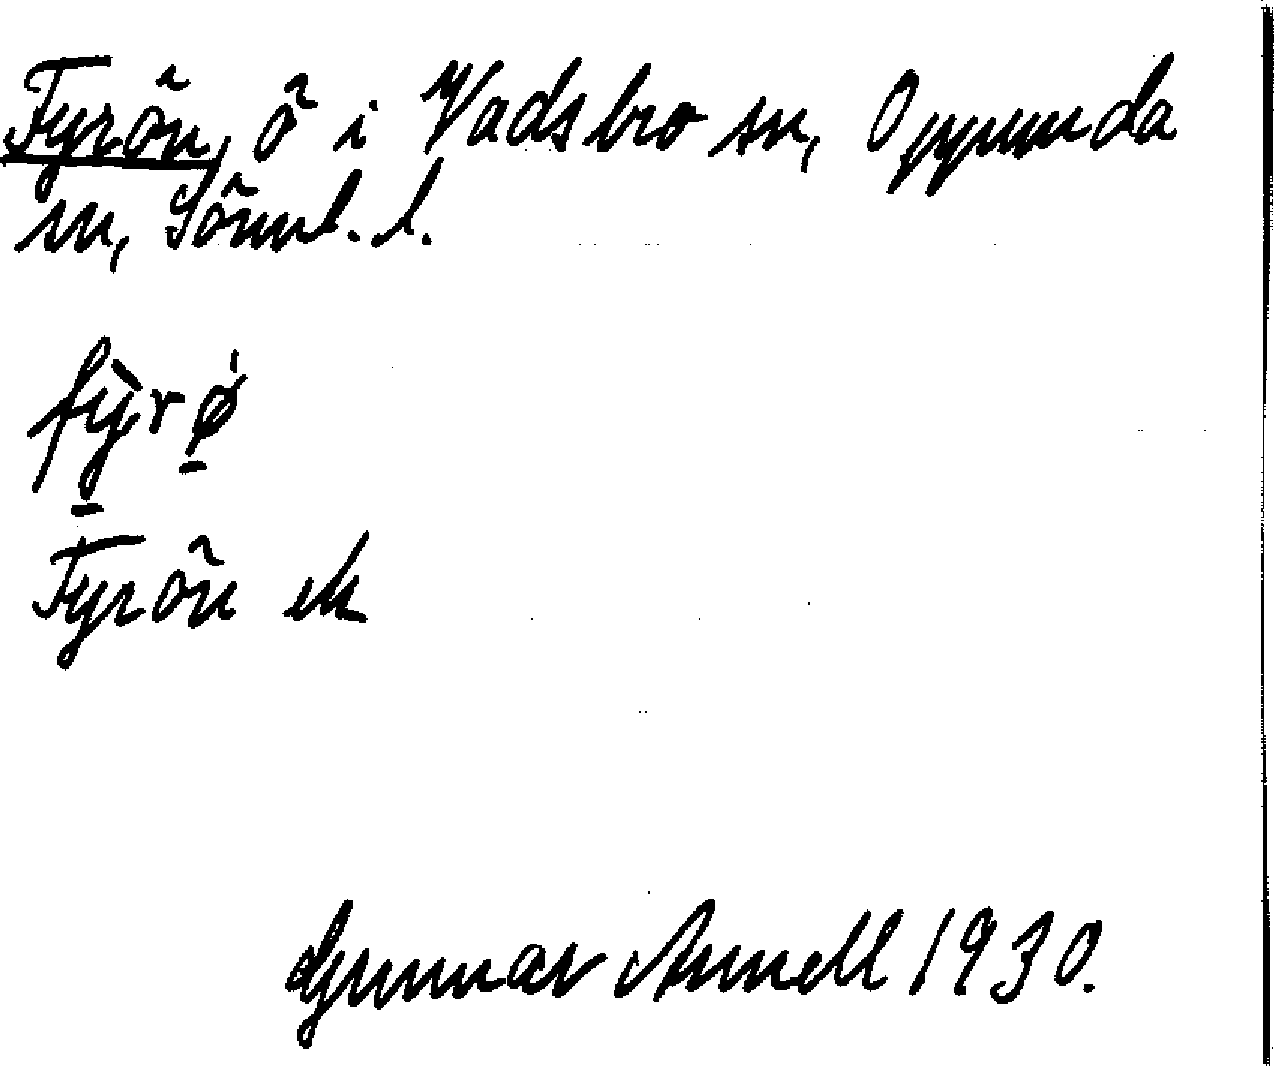 Fyrön, ö i Vadsbro sn, Oppunda
sn, Sörml. l.
fỳrø̍
Fyrön ek
Gunnar Arnell 1930.